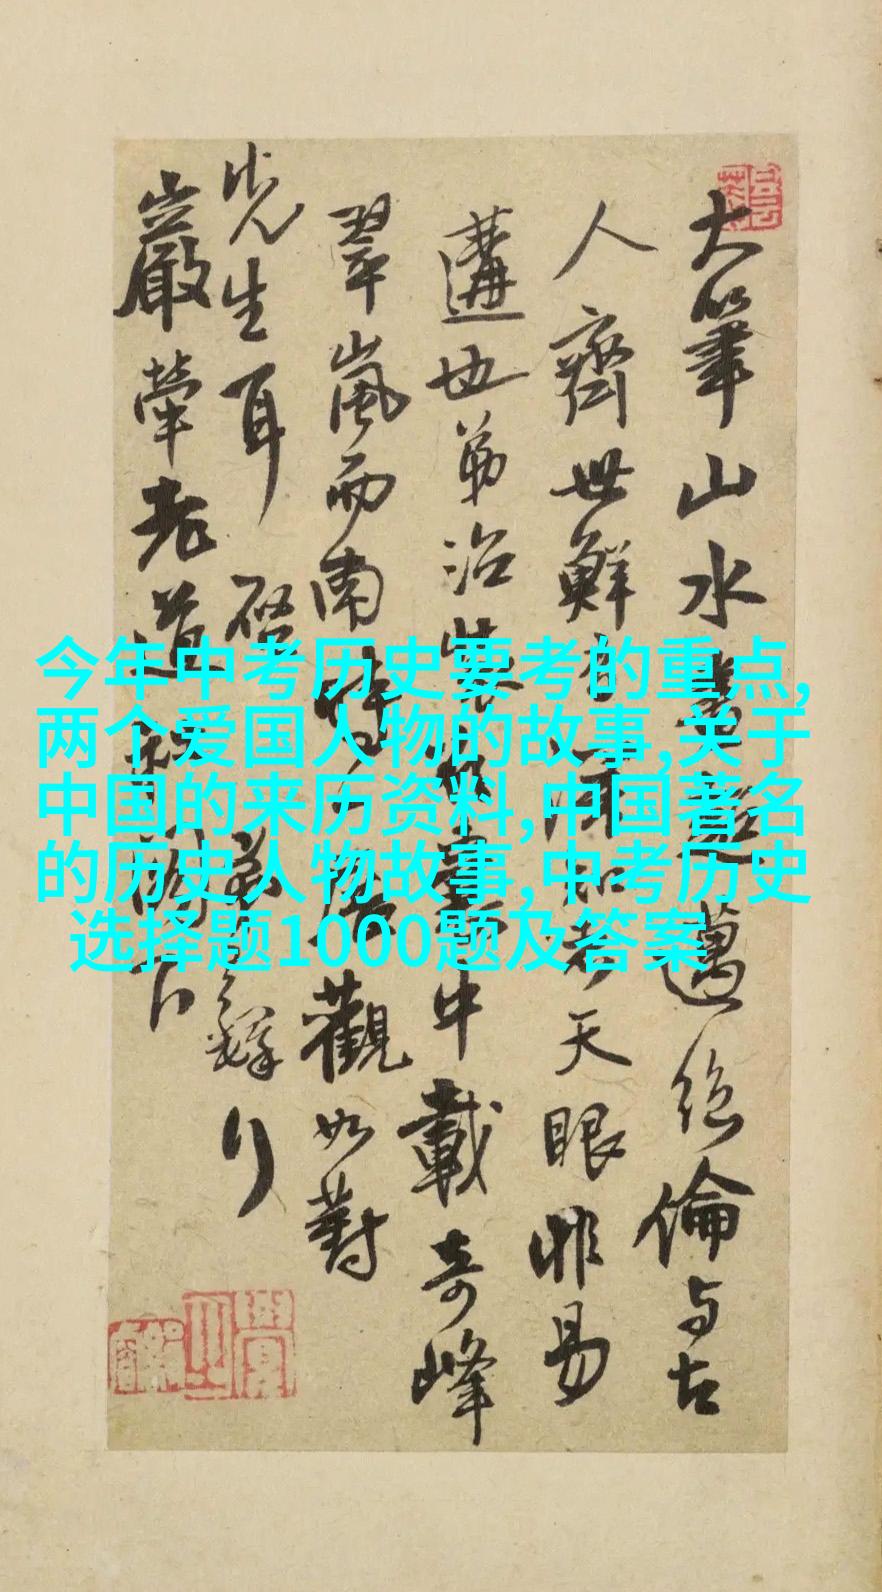 今年中考历史要考的重点,
两个爱国人物的故事,关于
中国的来历资料,中国著名
的历史人物故事,中考历史
选择题1000题及答案
大筆山水畫邁絕倫与古
人齊世鮮知者天眼非易
遘也弟治裝中載奇峰
翠嵐而南時觀如對
先生耳
嚴犖老道